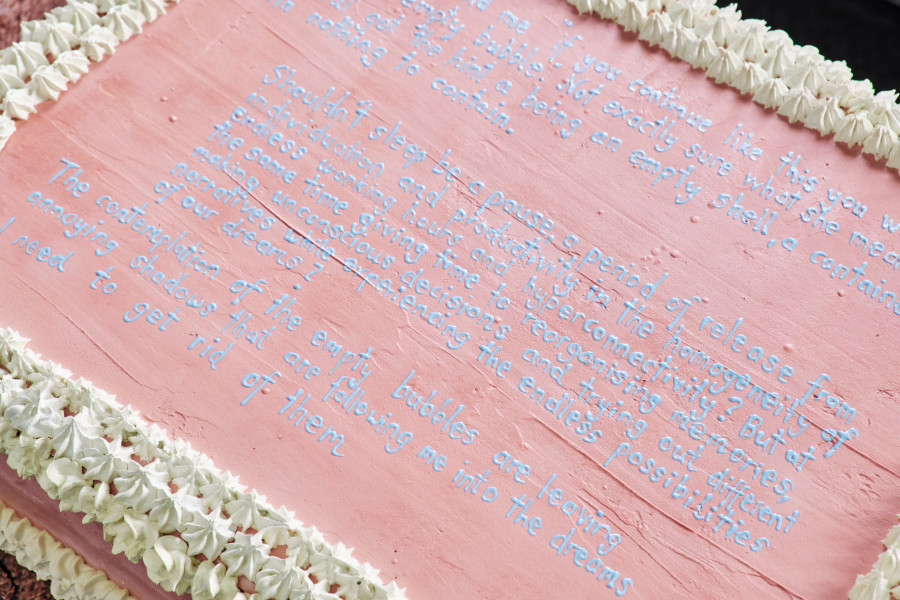 me if you continue like this you
empty bubble. Not exactly sure what she
got the hint a being an empty shell, a
nothing to contain.
Shouldn't sleep be a pause a period of release from
individuation and productivity in the homogeneity of
endless working hubs and hyperconnectivity? But at
the same time giving time to reorganising memories,
making unconscious decisions and trying out different
narratives while apprehending the endless possibilities
of our dreams?
The contemplation of the empty bubbles are leaving
annoying shadows that are following me into the dreams
I need to get rid of them